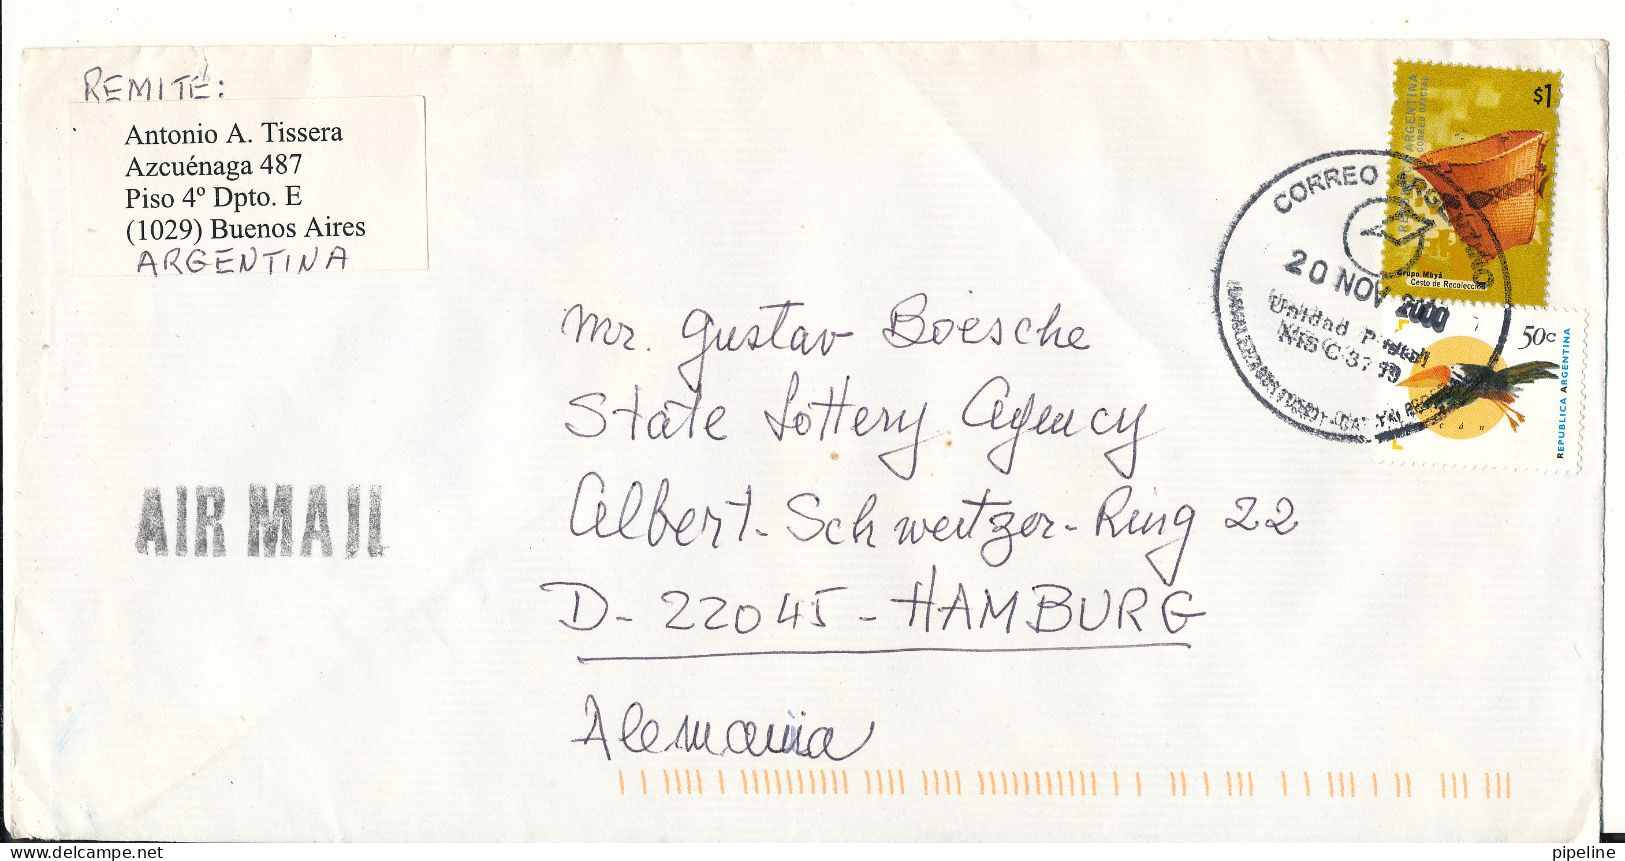 REMITE:
Antonio A. Tissera
Azcuénaga 487
Piso 4º Dpto. E
(1029) Buenos Aires
ARGENTINA
$1
REPUBLICA ARGENTINA
CORREO OFICIAL
Grupo Mbyá
Cesto de Recolección
CORREO ARGENTINO
20 NOV 2000
Unidad Postal
50c
REPUBLICA ARGENTINA
Mr. Gustav Boesche
State Lottery Agency
Albert-Schweitzer-Ring 22
D-22045-HAMBURG
Alemania
AIR MAIL
www.delcampe.net
pipeline